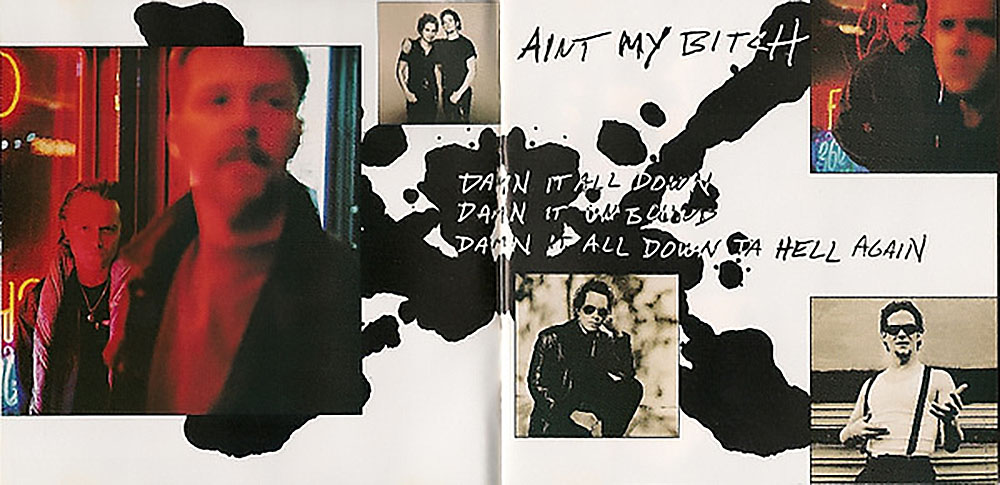 AINT MY BITCH
DAMN IT ALL DOWN
DAMN IT UNBOUND
DAMN IT ALL DOWN TA HELL AGAIN